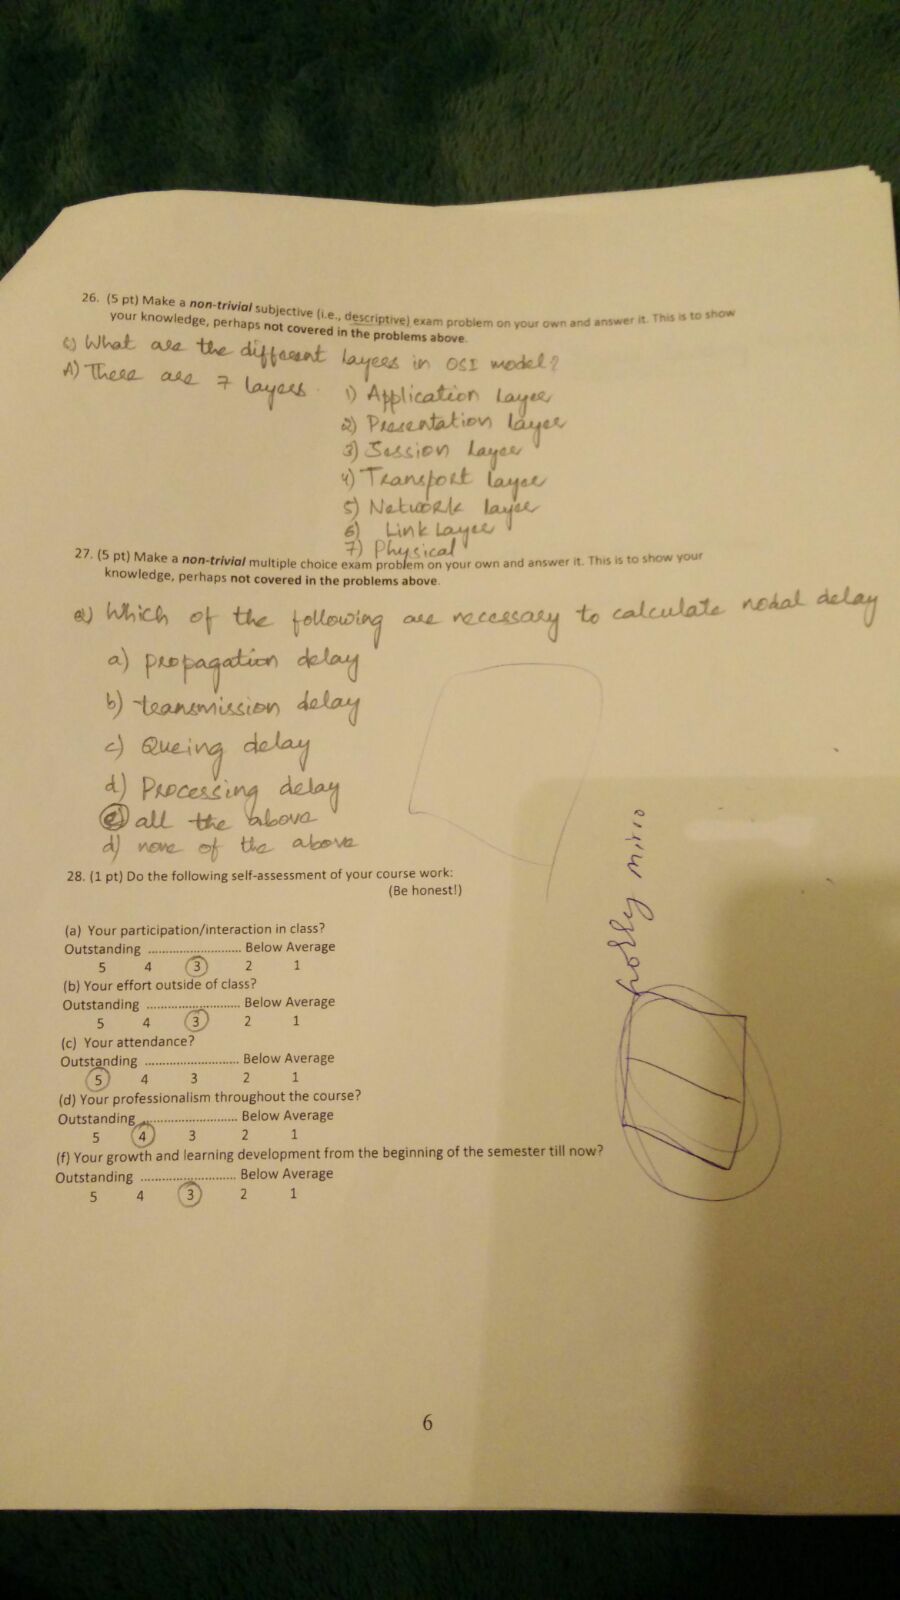 26. (5 pt) Make a non-trivial subjective (i.e., descriptive) exam problem on your own and answer it. This is to show
your knowledge, perhaps not covered in the problems above.
What are the different layers in OSI model?
A) There are 7 layers.
1) Application Layer
2) Presentation layer
3) Session Layer
4) Transport layer
5) Network layer
6) Link Layer
7) Physical
27. (5 pt) Make a non-trivial multiple choice exam problem on your own and answer it. This is to show your
knowledge, perhaps not covered in the problems above.
Q) Which of the following are necessary to calculate nodal delay
a) propagation delay
b) transmission delay
c) Queing delay
d) Processing delay
e) all the above
d) none of the above
28. (1 pt) Do the following self-assessment of your course work:
(Be honest!)
(a) Your participation/interaction in class?
Outstanding ............................ Below Average
5 4 3 2 1
(b) Your effort outside of class?
Outstanding ............................ Below Average
5 4 3 2 1
(c) Your attendance?
Outstanding ............................ Below Average
5 4 3 2 1
(d) Your professionalism throughout the course?
Outstanding ............................ Below Average
5 4 3 2 1
(f) Your growth and learning development from the beginning of the semester till now?
Outstanding ............................ Below Average
5 4 3 2 1
6